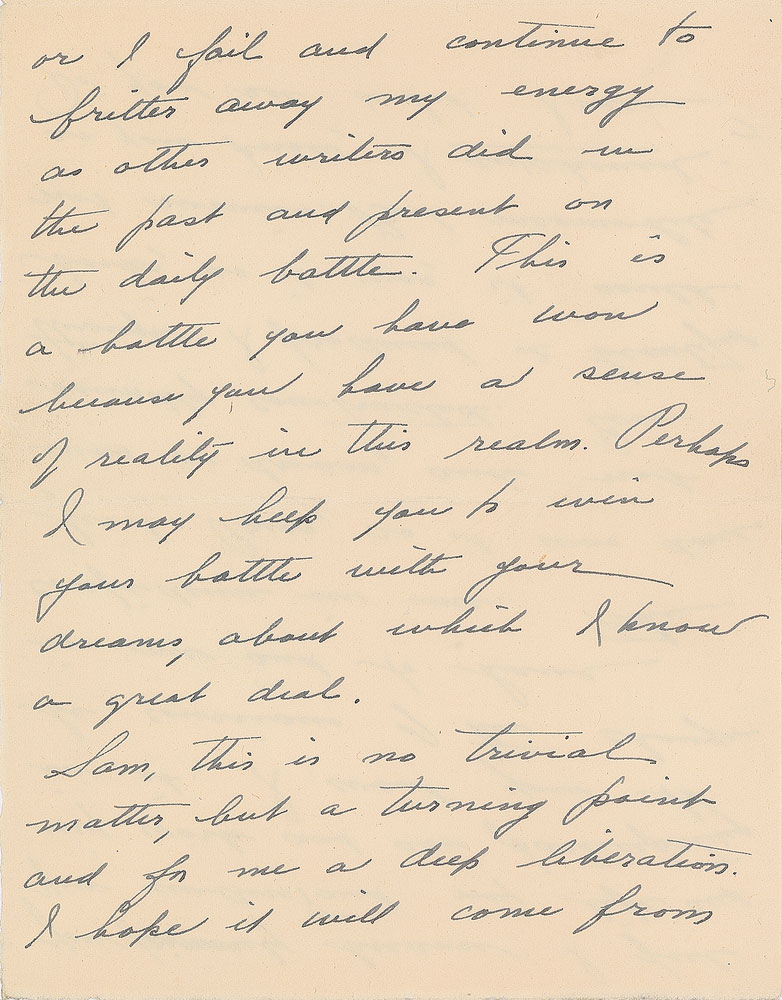 or I fail and continue to
fritter away my energy
as other writers did in
the past and present on
the daily battle. This is
a battle you have won
because you have a sense
of reality in this realm. Perhaps
I may help you to win
your battle with your
dreams, about which I know
a great deal.
Sam, this is no trivial
matter, but a turning point
and for me a deep liberation.
I hope it will come from